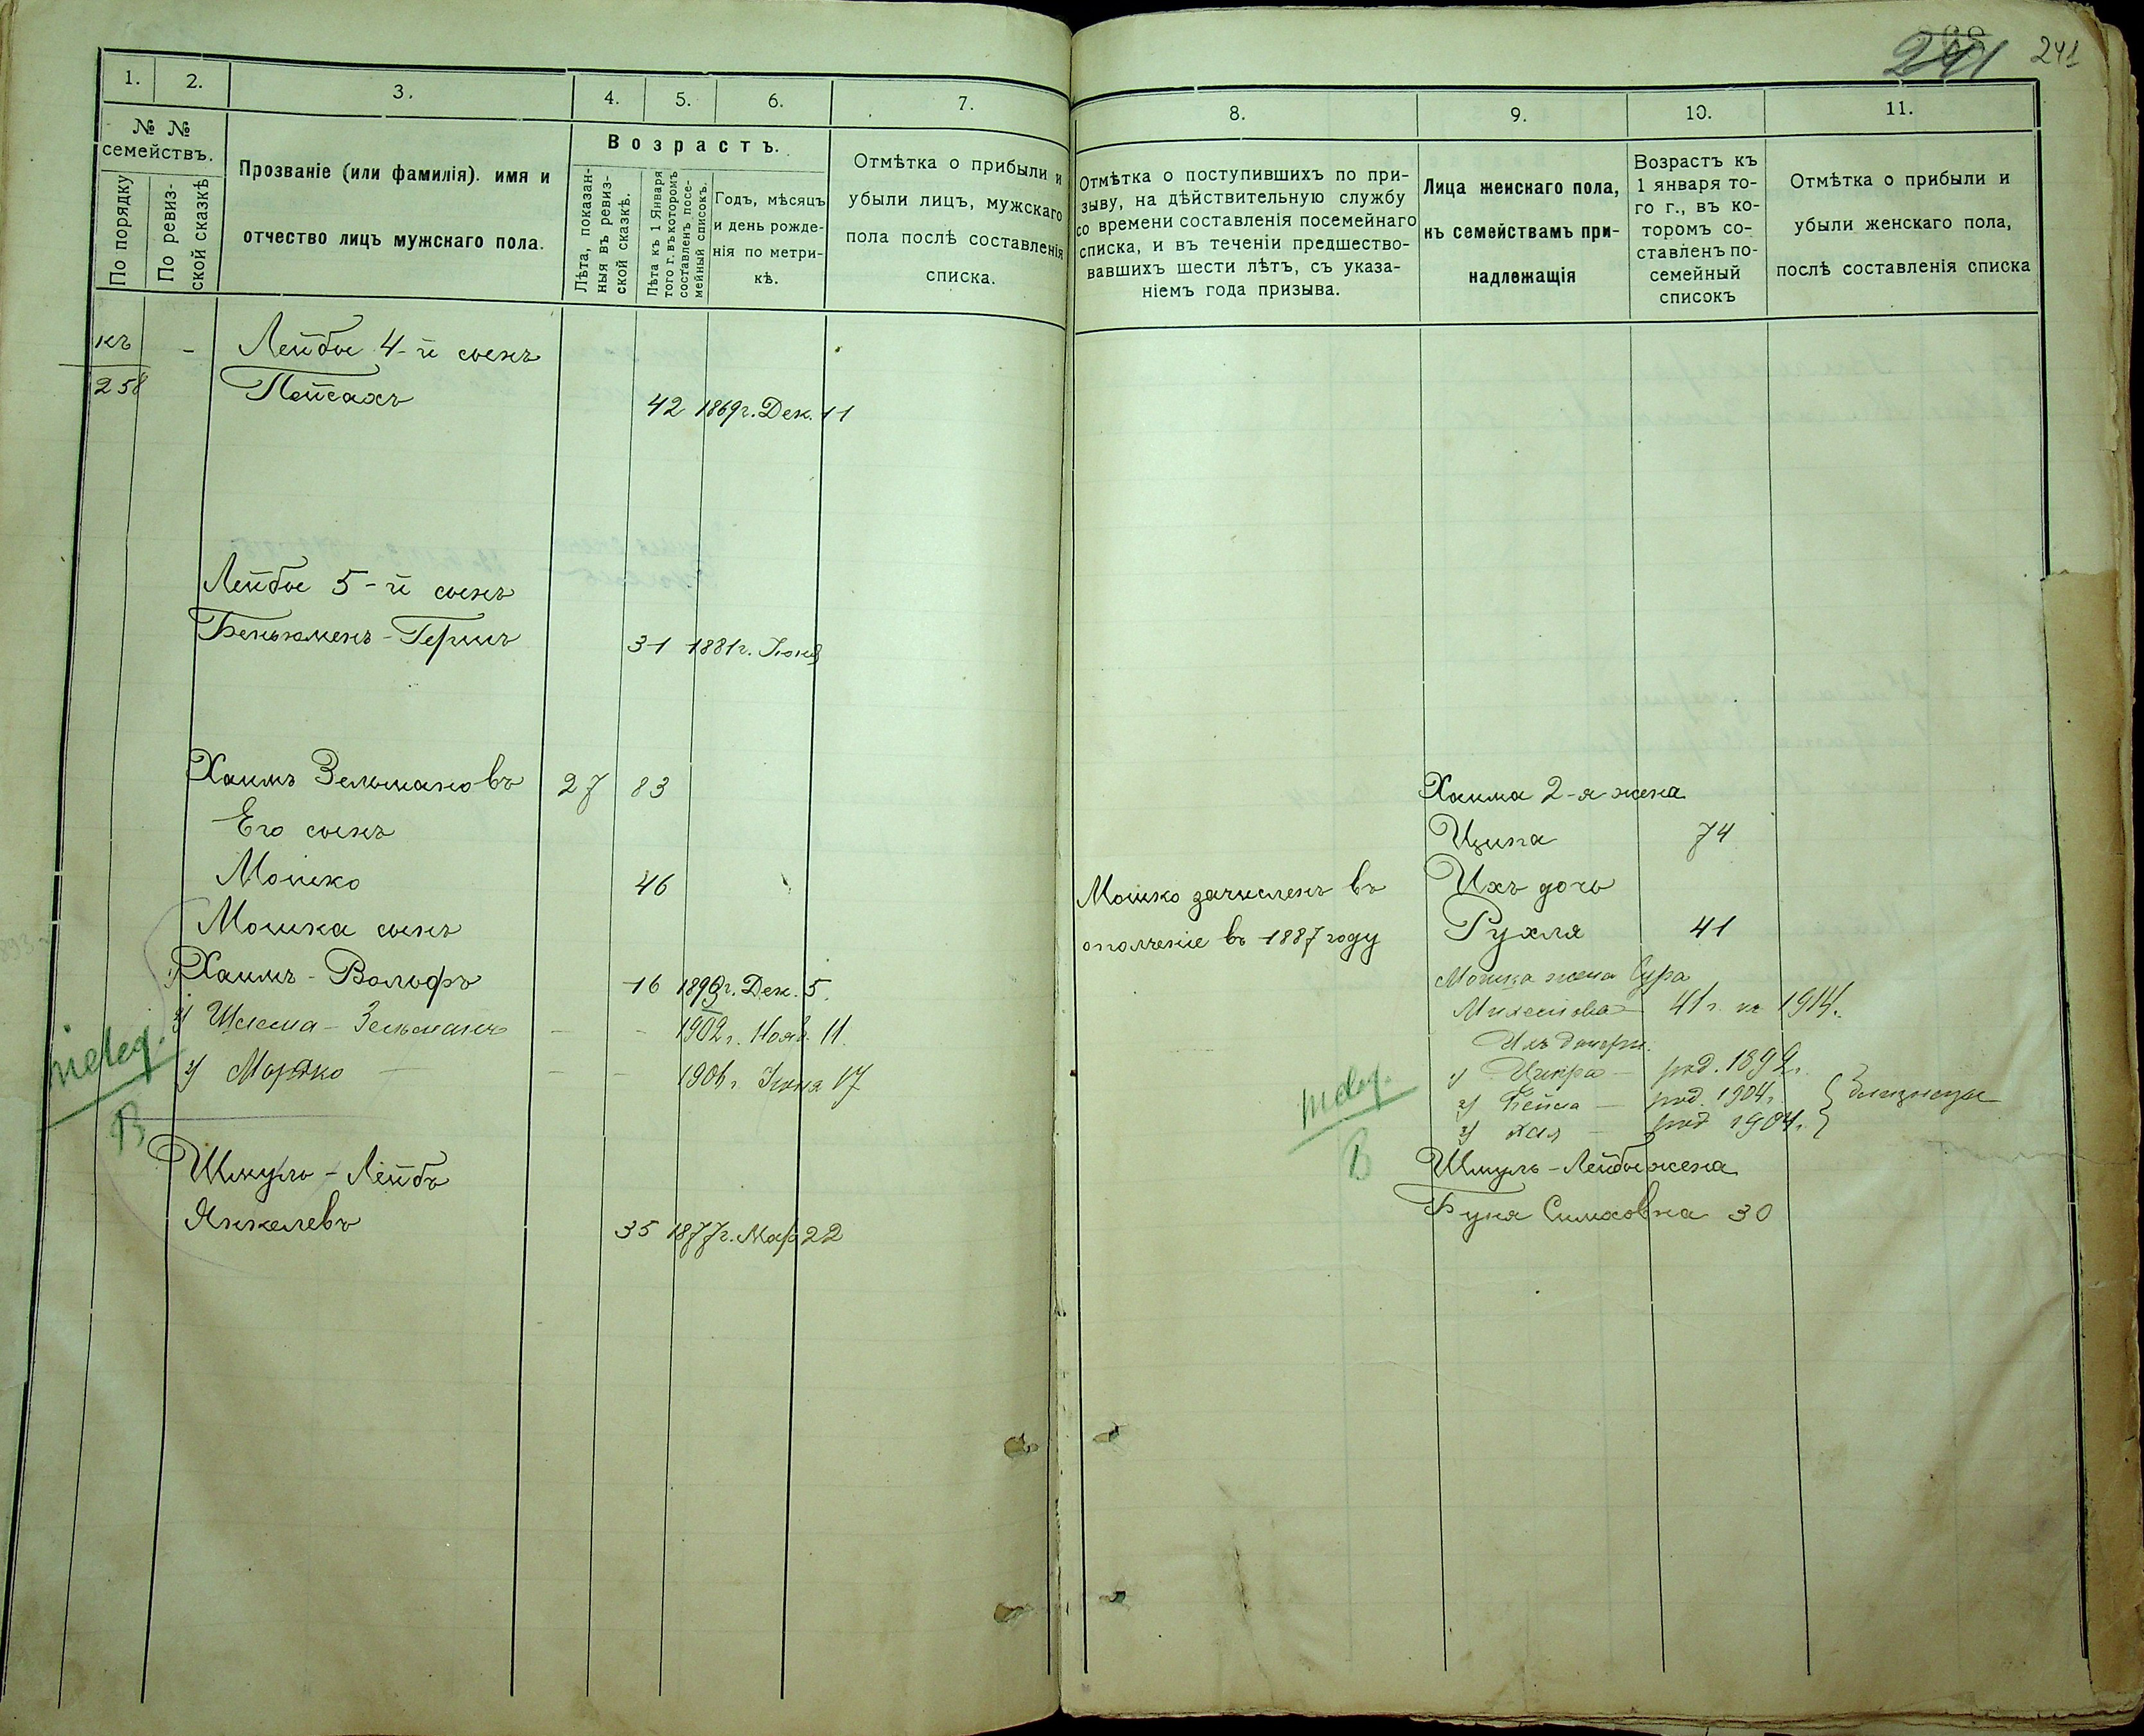 1.
2.
3.
4.
5.
6.
7.
№ №
семействъ.
По порядку
По ревиз-
ской сказкѣ
Прозваніе (или фамилія). имя и
отчество лицъ мужскаго пола.
Возрастъ.
Лѣта, показан-
ныя въ ревиз-
ской сказкѣ.
Лѣта къ 1 Января
того г. въ которомъ
составленъ посе-
мейный списокъ.
Годъ, мѣсяцъ
и день рожде-
нія по метри-
кѣ.
Отмѣтка о прибыли и
убыли лицъ, мужскаго
пола послѣ составленія
списка.
къ - Лейбы 4-й сынъ
258 Пейсахъ 42 1869г. Дек. 11
Лейбы 5-й сынъ
Беньяменъ-Гершъ 31 1881г. Іюня
Хаимъ Зельмановъ 27 83
Его сынъ
Мошко 46
Мошка сынъ
1) Хаимъ-Вольфъ 16 1893г. Дек. 5.
2) Шлема-Зельманъ - - 1902г. Нояб. 11.
3) Мордко - - - 1906г. Іюня 17
В
Шмуль-Лейбъ
Янкелевъ 35 1877г. Мар 22
241 241
8.
9.
10.
11.
Отмѣтка о поступившихъ по при-
зыву, на дѣйствительную службу
со времени составленія посемейнаго
списка, и въ теченіи предшество-
вавшихъ шести лѣтъ, съ указа-
ніемъ года призыва.
Лица женскаго пола,
къ семействамъ при-
надлежащія
Возрастъ къ
1 января то-
го г., въ ко-
торомъ со-
ставленъ по-
семейный
списокъ
Отмѣтка о прибыли и
убыли женскаго пола,
послѣ составленія списка
Хаима 2-я жена
Ципа 74
Мошко зачисленъ въ
ополченіе въ 1887 году
Ихъ дочь
Рухля 41
Мошка жена Сура
41 г. къ 1914.
Ихъ дочери.
1) род. 1899г.
2) Пейса - род. 1904г.
3) Хая - род 1904г.
близнецы
В
Шмуль-Лейбы жена
Буня Симховна 30